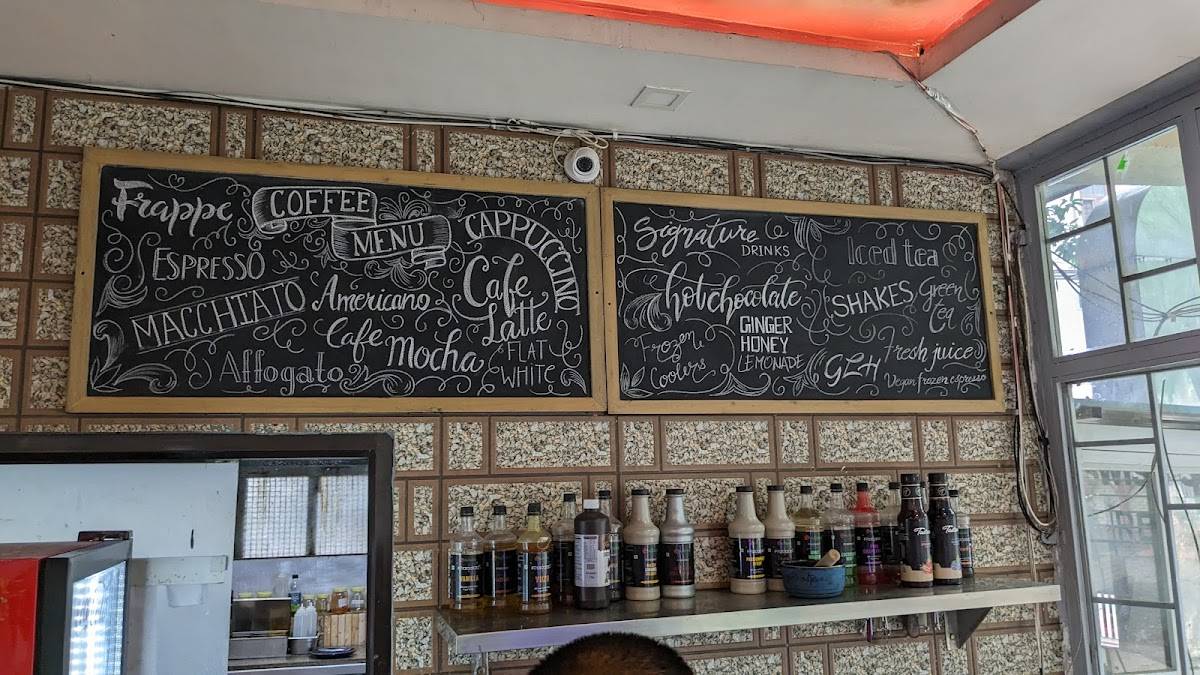 Frappe
COFFEE
MENU
CAPPUCCINO
ESPRESSO
Cafe
Latte
MACCHIATO
Americano
Cafe Mocha
FLAT
WHITE
Affogato
Signature
DRINKS
Iced tea
hot chocolate
SHAKES
Green
Tea
GINGER
HONEY
LEMONADE
Frozen
Coolers
GLH
Fresh juice
Vegan frozen espresso